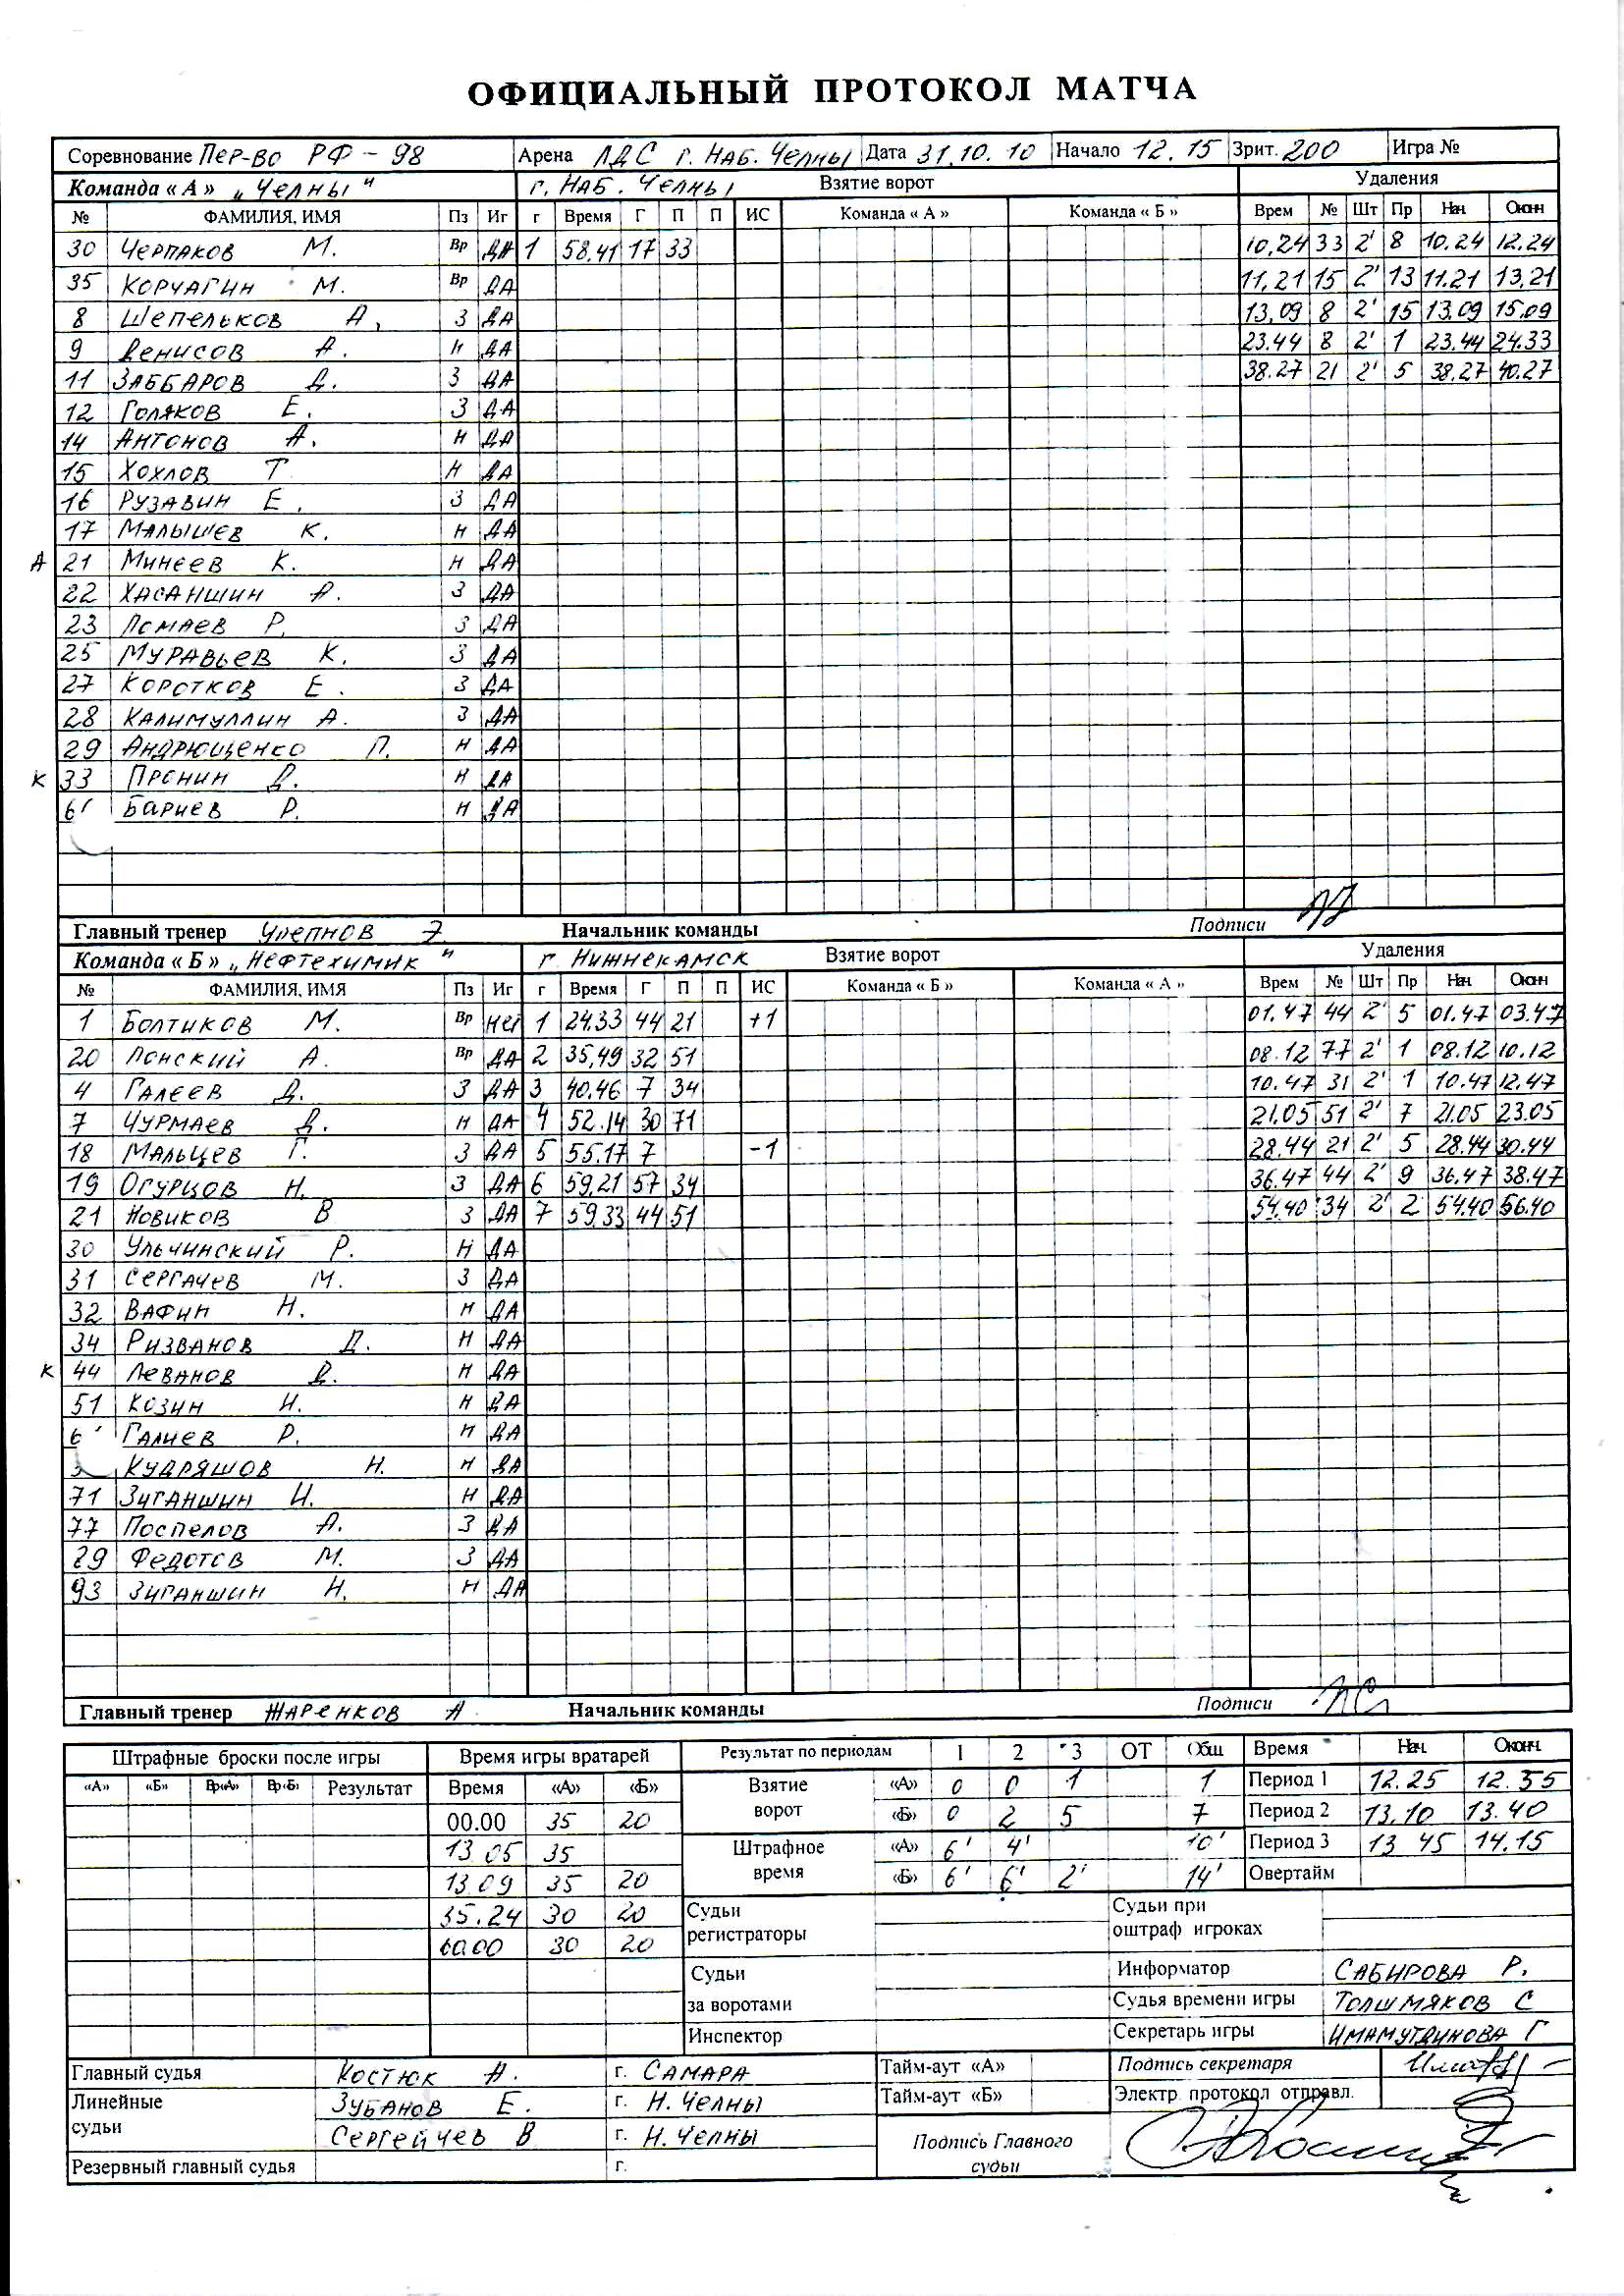 ОФИЦИАЛЬНЫЙ ПРОТОКОЛ МАТЧА
Соревнование Пер-во РФ - 98 Арена ЛДС г. Наб. Челны Дата 31.10.10 Начало 12.15 Зрит. 200 Игра №
Команда « А » „Челны" г. Наб. Челны Взятие ворот Удаления
№ ФАМИЛИЯ, ИМЯ Пз Иг г Время Г П П ИС Команда « А » Команда « Б » Врем № Шт Пр Нач Оконч
30 Черпаков М. Вр ДА 1 58.41 17 33 10.24 33 2' 8 10.24 12.24
35 Корчагин М. Вр ДА 11.21 15 2' 13 11.21 13.21
8 Шепельков А. З ДА 13.09 8 2' 15 13.09 15.09
9 Денисов А. Н ДА 23.44 8 2' 1 23.44 24.33
11 Заббаров Д. З ДА 38.27 21 2' 5 38.27 40.27
12 Голяков Е. З ДА
14 Антонов А. Н ДА
15 Хохлов Т Н ДА
16 Рузавин Е. З ДА
17 Малышев К. Н ДА
А 21 Минеев К. Н ДА
22 Хасаншин А. З ДА
23 Ломаев Р. З ДА
25 Муравьев К. З ДА
27 Коротков Е. З ДА
28 Калимуллин А. З ДА
29 Андрющенко П. Н ДА
К 33 Пронин Д. Н ДА
Бариев Р. Н ДА
Главный тренер Урепнов Э. Начальник команды Подписи
Команда « Б » „Нефтехимик " г Нижнекамск Взятие ворот Удаления
№ ФАМИЛИЯ, ИМЯ Пз Иг г Время Г П П ИС Команда « Б » Команда « А » Врем № Шт Пр Нач Оконч
1 Болтиков М. Вр нет 1 24.33 44 21 +1 01.47 44 2' 5 01.47 03.47
20 Лонский А. Вр ДА 2 35.49 32 51 08.12 77 2' 1 08.12 10.12
4 Галеев Д. З ДА 3 40.46 7 34 10.47 31 2' 1 10.47 12.47
7 Чурмаев Д. Н ДА 4 52.14 30 71 21.05 51 2' 7 21.05 23.05
18 Мальцев Г. З ДА 5 55.17 7 -1 28.44 21 2' 5 28.44 30.44
19 Огурцов Н. З ДА 6 59.21 57 34 36.47 44 2' 9 36.47 38.47
21 Новиков В З ДА 7 59.33 44 51 54.40 34 2' 2 54.40 56.40
30 Ульчинский Р. Н ДА
31 Сергачев М. З ДА
32 Вафин Н. Н ДА
34 Ризванов Д. Н ДА
К 44 Леванов Д. Н ДА
51 Козин И. Н ДА
Галиев Р. Н ДА
Кудряшов Н. Н ДА
71 Зиганшин И. Н ДА
77 Поспелов А. З ДА
Федотов М. З ДА
93 Зиганшин Н. Н ДА
Главный тренер Жаренков А Начальник команды Подписи
Штрафные броски после игры Время игры вратарей Результат по периодам 1 2 3 ОТ Общ Время Нач. Оконч.
«А» «Б» Вр«А» Вр«Б» Результат Время «А» «Б» Взятие ворот «А» 0 0 1 1 Период 1 12.25 12.55
00.00 35 20 «Б» 0 2 5 7 Период 2 13.10 13.40
13.05 35 Штрафное время «А» 6' 4' 10' Период 3 13 45 14.15
13.09 35 20 «Б» 6' 6' 2' 14' Овертайм
35.24 30 20 Судьи регистраторы Судьи при оштраф игроках
60.00 30 20
Судьи за воротами Информатор Сабирова Р.
Судья времени игры Толшмяков С
Инспектор Секретарь игры Имамутдинова Г
Главный судья Костюк А. г. Самара Тайм-аут «А» Подпись секретаря
Линейные судьи Зубанов Е. г. Н. Челны Тайм-аут «Б» Электр. протокол отправл.
Сергейчев В г. Н. Челны Подпись Главного судьи
Резервный главный судья г.